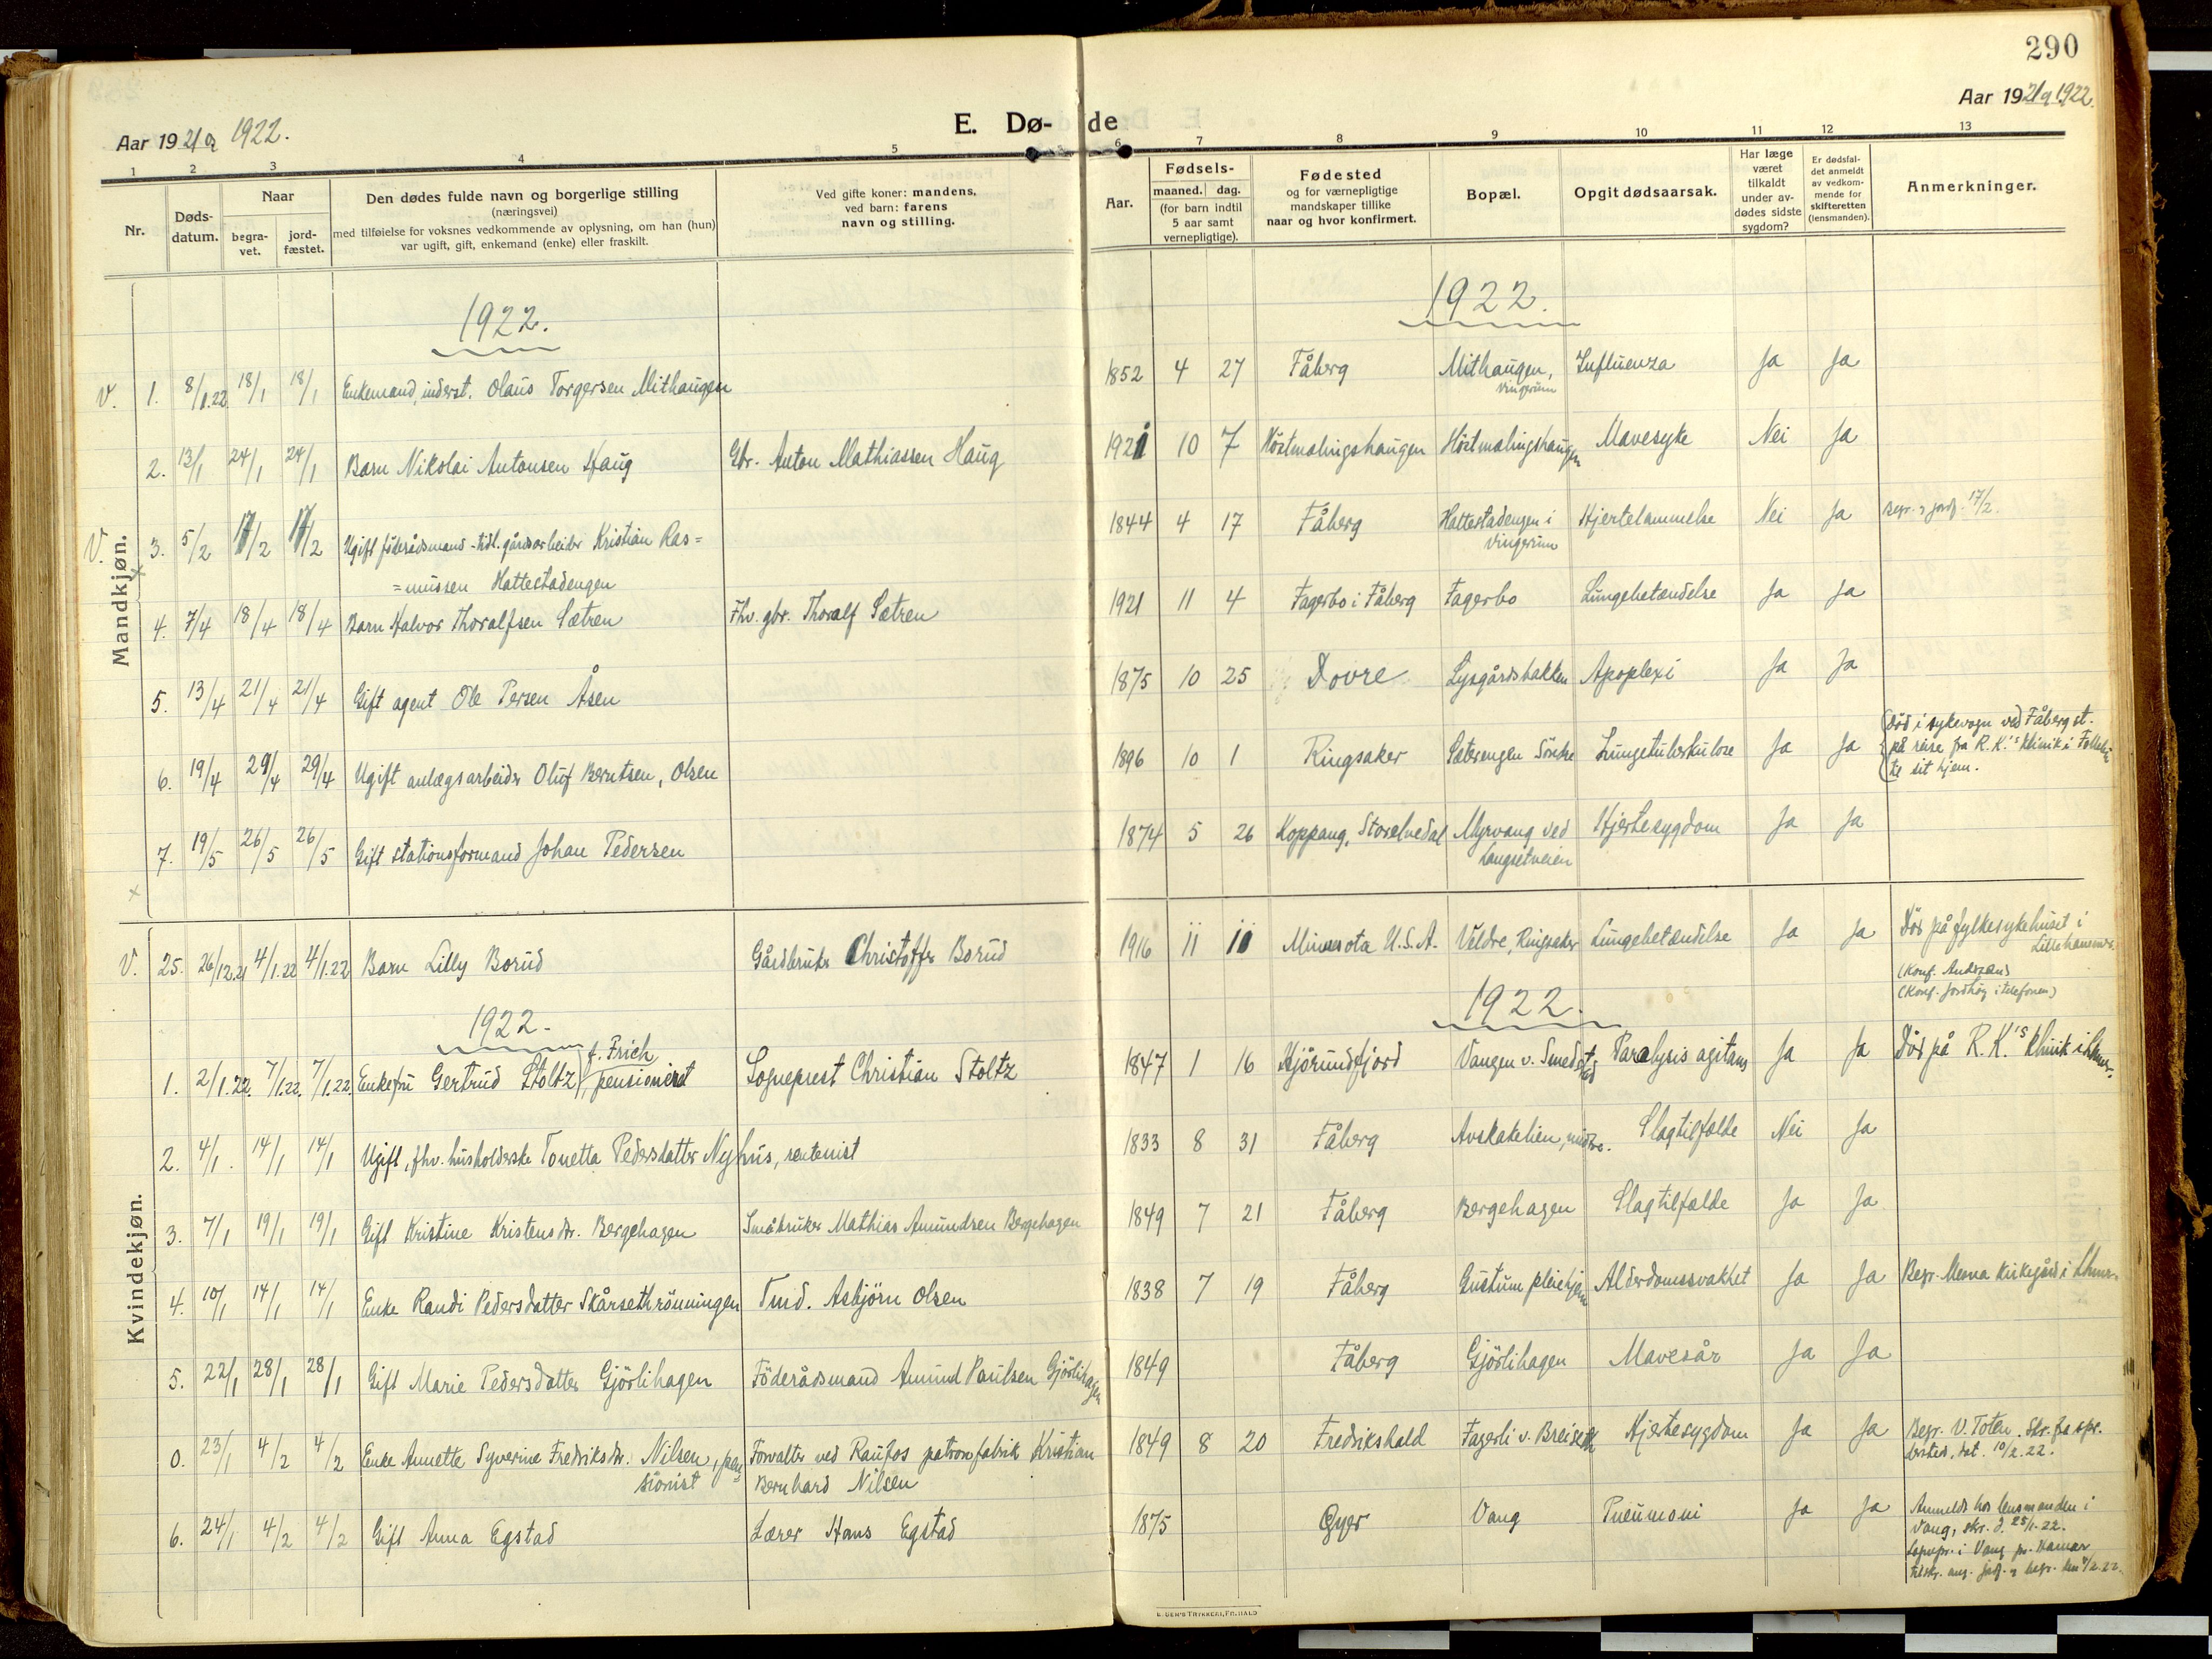 290
Aar 1921 og 1922.
E. Dø-
de
Aar 1921 og 1922.
1 2 3 4 5 6 7 8 9 10 11 12 13
Nr.
Døds-datum.
Naar
begra-vet.
jord-fæstet.
Den dødes fulde navn og borgerlige stilling
(næringsvei)
med tilføielse for voksnes vedkommende av oplysning, om han (hun)
var ugift, gift, enkemand (enke) eller fraskilt.
Ved gifte koner: mandens,
ved barn: farens
navn og stilling.
Aar.
Fødsels-
maaned. dag.
(for barn indtil
5 aar samt
vernepligtige).
Fødested
og for værnepligtige
mandskaper tillike
naar og hvor konfirmert.
Bopæl.
Opgit dødsaarsak.
Har læge
været
tilkaldt
under av-
dødes sidste
sygdom?
Er dødsfal-
det anmeldt
av vedkom-
mende for
skifteretten
(lensmanden).
Anmerkninger.
Mandkjøn.
1922. 1922.
V. 1. 8/1.22 18/1 18/1 Enkemand, inderst. Olaus Torgersen Mithaugen 1852 4 27 Fåberg Mithaugen, Vingerum Influenza Ja Ja
2. 13/1 24/1 24/1 Barn Nikolai Antonsen Haug Gbr. Anton Mathiassen Haug 1921 10 7 Höstmælingshaugen Höstmælingshaugen Mavesyke Nei Ja
V. 3. 5/2 17/2 17/2 Ugift föderådsmand - tidl. gårdsarbeider Kristian Ras=
=mussen Hattestadengen 1844 4 17 Fåberg Hattestadengen i Vingerum Hjertelammelse Nei Ja Begr. og jordf. 17/2.
4. 7/4 18/4 18/4 Barn Halvor Thoralfsen Sætren Fhv. gbr. Thoralf Sætren 1921 11 4 Fagerbo i Fåberg Fagerbo Lungebetændelse Ja Ja
5. 13/4 21/4 21/4 Gift agent Ole Persen Åsen 1875 10 25 Dovre Lysgårdsbakken Apoplexi Ja Ja
6. 19/4 29/4 29/4 Ugift anlægsarbeider Oluf Berntsen, Olsen 1896 10 1 Ringsaker Sæterengen Söndre Lungetuberkulose Ja Ja Död i sykevogn ved Fåberg st.
på reise fra R.K.'s klinik i
til sit hjem.
7. 19/5 26/5 26/5 Gift stationsformand Johan Pedersen 1874 5 26 Koppang, Storelvedal Myrvang ved Langsetveien Hjertesygdom Ja Ja
Kvindekjøn.
V. 25. 26/12.21 4/1.22 4/1.22 Barn Lilly Borud Gårdbruker Christoffer Borud 1916 11 11 Minnesota U.S.A. Veldre, Ringsaker Lungebetændelse Ja Ja Död på fylkesykehuset i
Lillehammer.
(Konf. Jordhöy i telefonen)
1922. 1922.
1. 2/1.22. 7/1.22. 7/1.22. Enkefru Gertrud Stoltz f. Frich, pensioneret Sogneprest Christian Stoltz 1847 1 16 Hjörundfjord Vangen v. Smedstad Paralysis agitans Ja Ja Död på R.K.'s klinik i Lhmr.
2. 4/1. 14/1 14/1 Ugift, fhv. husholderske Tonetta Pedersdatter Nyhus, rentenist 1833 8 31 Fåberg Avskakelien, midtre. Slagtilfælde Nei Ja
3. 7/1 19/1 19/1 Gift Kristine Kristensdtr. Bergehagen Småbruker Mathias Amundsen Bergehagen 1849 7 21 Fåberg Bergehagen Slagtilfælde Ja Ja
4. 10/1 14/1 14/1 Enke Randi Pedersdatter Skårsethrönningen Tmd. Asbjörn Olsen 1838 7 19 Fåberg Gustum pleiehjem Alderdomssvakhet Ja Ja Begr. Mesna kirkegård i Lhmr.
5. 22/1 28/1 28/1 Gift Marie Pedersdatter Gjörlihagen Föderådsmand Amund Paulsen Gjörlihagen 1849 Fåberg Gjörlihagen Mavesår Ja Ja
0. 23/1 4/2 4/2 Enke Annette Syverine Fredriksdtr. Nilsen, pen=
sionist Forvalter ved Raufos patronfabrik Kristian
Bernhard Nilsen 1849 8 20 Fredrikshald Fagerli v. Breiseth Hjertesygdom Ja Ja Begr. V. Toten. Skr. fra spr.
dat. 10/2.22.
6. 24/1 4/2 4/2 Gift Anna Egstad Lærer Hans Egstad 1875 Öyer Vang Pneumoni Ja Ja Anmeldt hos lensmanden i
Vang, skr. d. 25/1.22.
Sognepr. i Vang pr. Hamar
tilskr. ang. jordf. og begr. den 4/2.22.
E. SEM'S TRYKKERI, FR.HALD